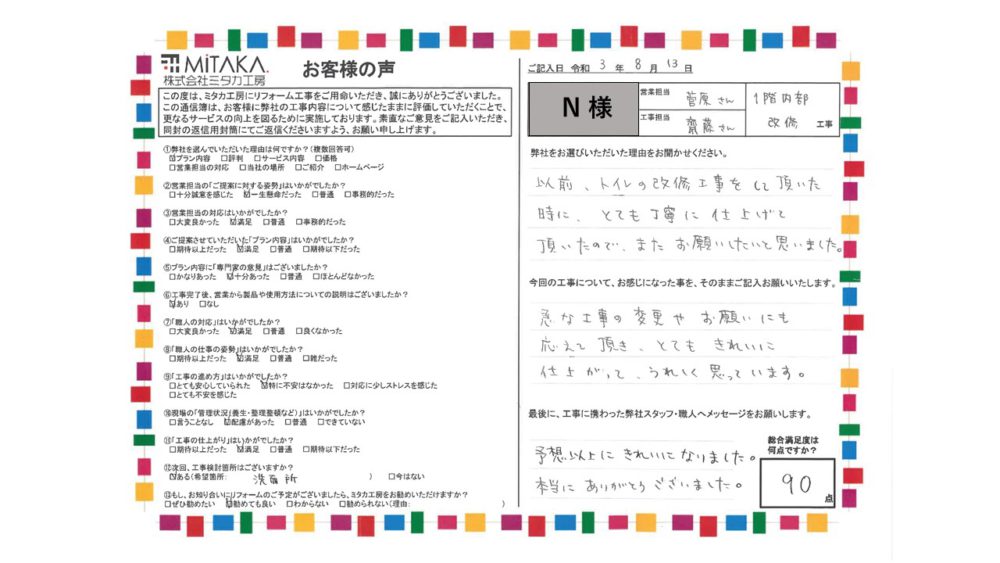 MiTAKA.
株式会社ミタカ工房
お客様の声
この度は、ミタカ工房にリフォーム工事をご用命いただき、誠にありがとうございました。
この通信簿は、お客様に弊社の工事内容について感じたままに評価していただくことで、
更なるサービスの向上を図るために実施しております。素直なご意見をご記入いただき、
同封の返信用封筒にてご返信くださいますよう、お願い申し上げます。
①弊社を選んでいただいた理由は何ですか?(複数回答可)
☑プラン内容 □評判 □サービス内容 □価格
□営業担当の対応 □当社の場所 □ご紹介 □ホームページ
②営業担当の「ご提案に対する姿勢」はいかがでしたか?
□十分誠意を感じた ☑一生懸命だった □普通 □事務的だった
③営業担当の対応はいかがでしたか?
□大変良かった ☑満足 □普通 □事務的だった
④ご提案させていただいた「プラン内容」はいかがでしたか?
□期待以上だった ☑満足 □普通 □期待以下だった
⑤プラン内容に「専門家の意見」はございましたか?
□かなりあった ☑十分あった □普通 □ほとんどなかった
⑥工事完了後、営業から製品や使用方法についての説明はございましたか?
☑あり □なし
⑦「職人の対応」はいかがでしたか?
□大変良かった ☑満足 □普通 □良くなかった
⑧「職人の仕事の姿勢」はいかがでしたか?
□期待以上だった ☑満足 □普通 □雑だった
⑨「工事の進め方」はいかがでしたか?
□とても安心していられた ☑特に不安はなかった □対応に少しストレスを感じた
□とても不安を感じた
⑩現場の「管理状況」(養生・整理整頓など)」はいかがでしたか?
□言うことなし ☑配慮があった □普通 □できていない
⑪「工事の仕上がり」はいかがでしたか?
□期待以上だった ☑満足 □普通 □期待以下だった
⑫次回、工事検討箇所はございますか?
☑ある(希望箇所: 洗面所 ) □今はない
⑬もし、お知り合いにリフォームのご予定がございましたら、ミタカ工房をお勧めいただけますか?
□ぜひ勧めたい ☑勧めても良い □わからない □勧められない(理由: )
ご記入日 令和 3 年 8 月 13 日
N 様
営業担当 菅原さん
工事担当 齋藤さん
1階内部
改修 工事
弊社をお選びいただいた理由をお聞かせください。
以前、トイレの改修工事をして頂いた
時に、とても丁寧に仕上げて
頂いたので、またお願いしたいと思いました。
今回の工事について、お感じになった事を、そのままご記入お願いいたします。
急な工事の変更やお願いにも
応えて頂き、とてもきれいに
仕上がって、うれしく思っています。
最後に、工事に携わった弊社スタッフ・職人へメッセージをお願いします。
予想以上にきれいになりました。
本当にありがとうございました。
総合満足度は
何点ですか?
90
点